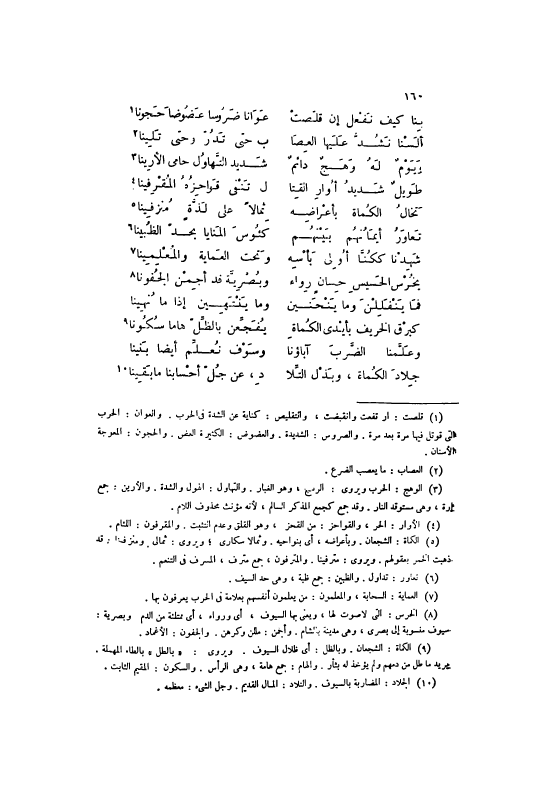 ١٦٠
بِنا كيف نَفْعل إن قلَّصتْ عَوَانا ضَرُوسا عَضُوضا حَجُونا١
ألسْنا نَشُدُّ عَلَيها العِصَا ب حتى تَدُرَّ وحتى تَلِينا٢
وَيَوْمٌ لَهُ وَهَجٌ دائمٌ شَديد التَّهاوُل حامى الأرِينا٣
طويلٌ شَديدُ أُوارِ القِتا ل تَنْفى قَواحِزُهُ المُقْرِفِينا٤
تَخالُ الكُماةَ بأعْراضِهِ ثِمالاً على لَذَّةٍ مُنزِفِينا٥
تَعاوَرُ أيمانُهُم بَيْنَهُم كئوسَ المنايا بحَدِّ الظُّبِينا٦
شَهِدْنا فكُنَّا أُولِى بَأْسِه وتحت العَمَاية والمُعْلِمِينا٧
بخُرْسِ الحَسِيسِ حِسانٍ رِواء وبُصْرِيَّة قد أجِمْنَ الجُفُونا٨
فما يَنْفَلِلْنَ وما يَنْحَنِينَ وما يَنْتَهِينَ إذا ما نُهِينا
كبرْقِ الخريف بأيْدى الكُماةِ يُفَجِّعن بالظِّلِّ هاما سُكُونا٩
وعَلَّمنا الضَّرْبَ آباؤنا وسَوْف نُعَلِّم أيضا بَنينا
جِلادَ الكُماة ، وبَذْل التِّلا د ، عن جُلِّ أحْسابنا ما بَقينا١٠
(١) قلصت : ارتفعت وانقبضت ، والتقليص : كناية عن الشدة فى الحرب . والعوان : الحرب
التى قوتل فيها مرة بعد مرة . والضروس : الشديدة . والعضوض : الكثيرة العض . والحجون : المعوجة
الأسنان .
(٢) العصاب : ما يعصب الضرع .
(٣) الوهج : الحرب ويروى : الرهج ، وهو الغبار . والتهاول : الهول والشدة . والأرين : جمع
إرة ، وهى مستوقد النار . وقد جمع كجمع المذكر السالم ، لأنه مؤنث محذوف اللام .
(٤) الأوار : الحر ، والقواحز : من القحز ، وهو القلق وعدم التثبت . والمقرفون : اللئام .
(٥) الكماة : الشجعان . وبأعراضه ، أى بنواحيه . وثمالا سكارى ؛ ويروى : ثمالى . ومنزفينا : قد
ذهبت الخمر بعقولهم . ويروى : مترفينا . والمترفون ، جمع مترف ، المسرف فى التنعم .
(٦) تعاور : تداول . والظبين : جمع ظبة ، وهى حد السيف .
(٧) العماية : السحابة ، والمعلمون : من يعلمون أنفسهم بعلامة فى الحرب يعرفون بها .
(٨) الخرس : التى لا صوت لها ، ويعنى بها السيوف ، أى ورواء ، أى ممتلئة من الدم وبصرية :
سيوف منسوبة إلى بصرى ، وهى مدينة بالشام . وأجمن : مللن وكرهن . والجفون : الأغماد .
(٩) الكماة : الشجعان . وبالظل : أى ظلال السيوف . ويروى : « بالطل » بالطاء المهملة .
يريد ما طل من دمهم ولم يؤخذ له بثأر . والهام : جمع هامة ، وهى الرأس . والسكون : المقيم الثابت .
(١٠) الجلاد : المضاربة بالسيوف . والتلاد : المال القديم . وجل الشىء : معظمه .